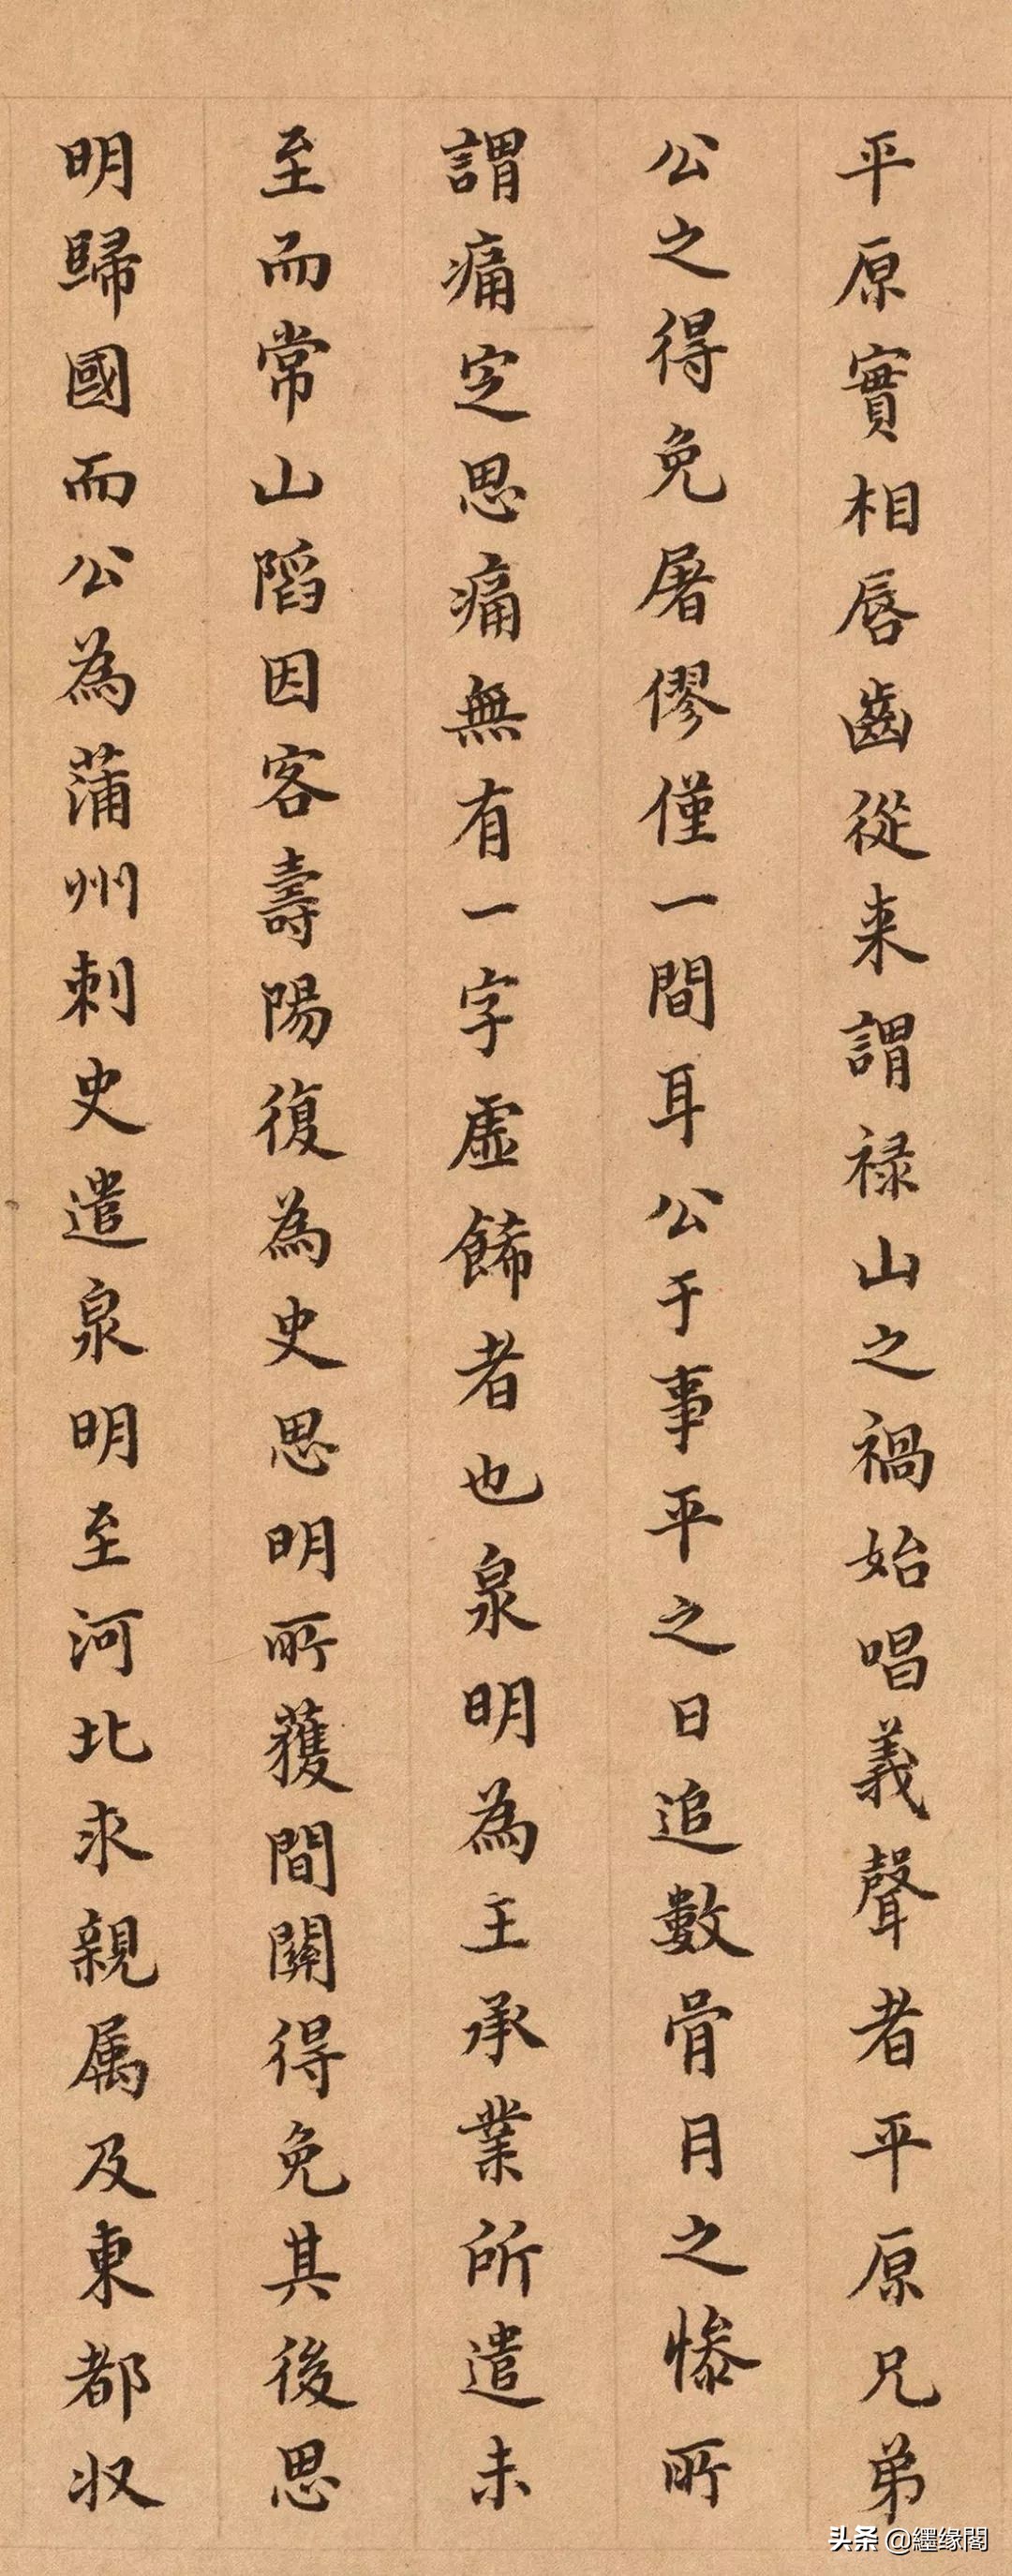 平原實相唇齒從来謂禄山之禍始唱義聲者平原兄弟
公之得免屠僇僅一間耳公于事平之日追數骨月之慘所
謂痛定思痛無有一字虛餙者也泉明為王承業所遣未
至而常山䧟因客壽陽復為史思明所獲間關得免其後思
明歸國而公為蒲州刺史遣泉明至河北求親属及東都収
头条 @纆缘閣